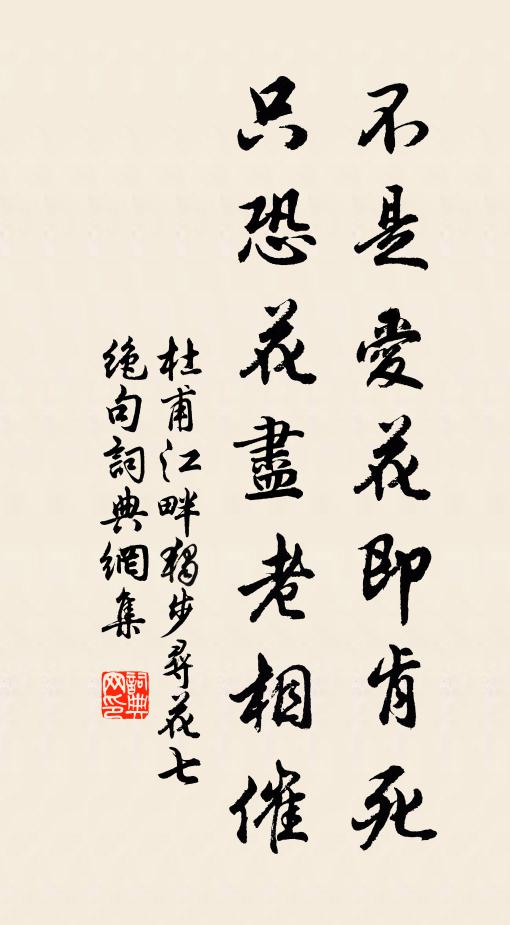 不是愛花即肯死
只恐花盡老相催
杜甫江畔獨步尋花七
絶句詞典網集
詞典网印